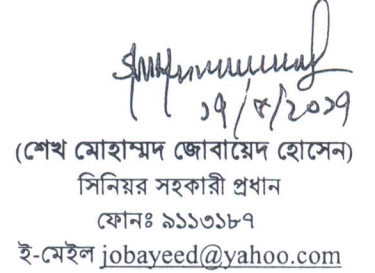 ১৭/৫/২০১৭
(শেখ মোহাম্মদ জোবায়েদ হোসেন)
সিনিয়র সহকারী প্রধান
ফোনঃ ৯১১৩১৮৭
ই-মেইল jobayeed@yahoo.com